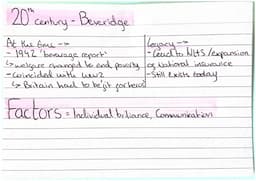 20th century - Beveridge
At the time -->
- 1942 'beverage report'
↳ welfare changed to end poverty
- coincided with WW2
↳ Britain had to be 'fit for heroes'
Legacy -->
- Lead to NHS/expansion
of national insurance
- Still exists today
Factors = Individual briliance, Communication